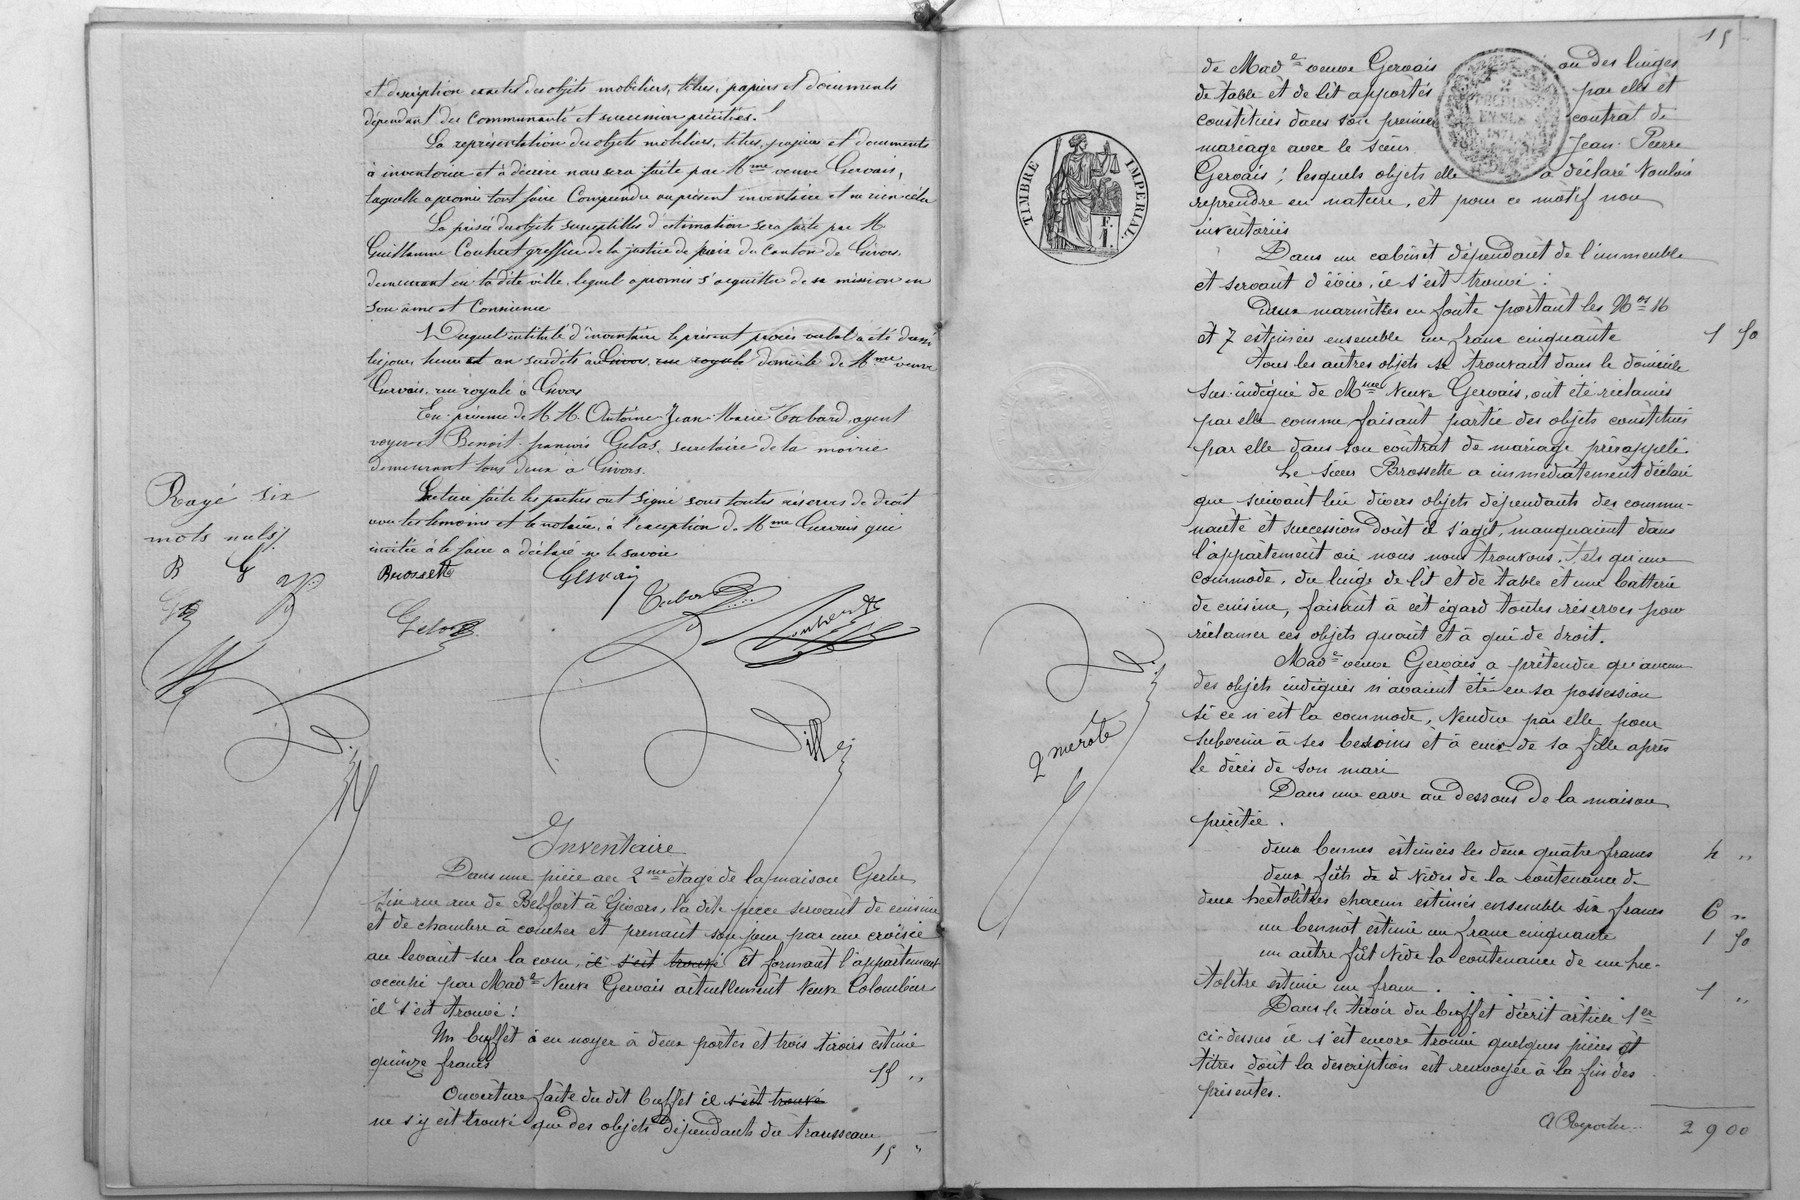 et description exacte des objets mobiliers, titres, papiers et documents
dépendant des Communauté et succession précitées.
La représentation des objets mobiliers, titres, papiers et documents
à inventorier et à décrire nous sera faite par Mme veuve Gervais,
laquelle a promis tout faire Comprendre au présent inventaire et ne rien céler
La prisée des objets susceptibles d'estimation sera faite par M
Guillaume Couhert greffier de la justice de paix du canton de Givors,
demeurant en la dite ville, lequel a promis s'acquitter de sa mission en
son âme et Conscience
Duquel intitulé d'inventaire le présent procès verbal a été dressé
les jour, heure et an susdits au Givors, rue royale domicile de Mme veuve
Gervais, rue royale à Givors
En présence de M M. Antoine Jean-Marie Tabard, agent
voyer et Benoit françois Gelas, secrétaire de la mairie
demeurant tous deux à Givors.
Lecture faite les parties ont signé sous toutes réserves de droit
avec les témoins et le notaire, à l'exception de Mme Gervais qui
invitée à le faire a déclaré ne le savoir
Rayé six
mots nuls
B G
Brossette Gervais
Tabard Couhert
Gelas
Inventaire
Dans une pièce au 2me étage de la maison Gerbe
sise rue de Belfort à Givors, la dite pièce servant de cuisine
et de chambre à coucher et prenant son jour par une croisée
au levant sur la cour, il s'est trouvé et formant l'appartement
occupé par Made Veuve Gervais actuellement Veuve Colombier
il s'est trouvé :
Un buffet en noyer à deux portes et trois tiroirs estimé
quinze francs 15 ,,
Ouverture faite du dit buffet il s'est trouvé
ne s'y est trouvé que des objets dépendants du trousseau
15 "
15
de Made veuve Gervais ou des linges
de table et de lit apportés par elle et
constitués dans son premier contrat de
mariage avec le sieur Jean-Pierre
Gervais ; lesquels objets elle a déclaré vouloir
reprendre en nature, et pour ce motif non
inventoriés
TIMBRE IMPÉRIAL
Dans un cabinet dépendant de l'immeuble
et servant d'évier, il s'est trouvé :
Deux marmites en fonte portant les Nos 16
et 7 estimées ensemble un franc cinquante 1 50
tous les autres objets se trouvant dans le domicile
sus-indiqué de Mme Veuve Gervais, ont été réclamés
par elle comme faisant partie des objets constitués
par elle dans son contrat de mariage prérappelé
Le sieur Brossette a immédiatement déclaré
que suivant lui divers objets dépendants des commu-
nauté et succession dont il s'agit, manquaient dans
l'appartement où nous nous trouvons, tels qu'une
commode, du linge de lit et de table et une batterie
de cuisine, faisant à cet égard toutes réserves pour
réclamer ces objets quant et à qui de droit.
Made veuve Gervais a prétendu qu'aucun
des objets indiqués n'avaient été en sa possession
si ce n'est la commode, vendue par elle pour
subvenir à ses besoins et à ceux de sa fille après
le décès de son mari
2me role
Dans une cave au dessous de la maison
précitée.
deux bennes estimées les deux quatre francs 4 ,,
deux fûts vides de la contenance de
deux hectolitres chacun estimés ensemble six francs 6 ,,
un bennot estimé un franc cinquante 1 50
un autre fût vide la contenance de un hec-
tolitre estimé un franc. 1 ,,
Dans le tiroir du buffet décrit article 1er
ci-dessus il s'est encore trouvé quelques pièces et
titres dont la description est renvoyée à la fin des
présentes.
A Reporter.. 29 00